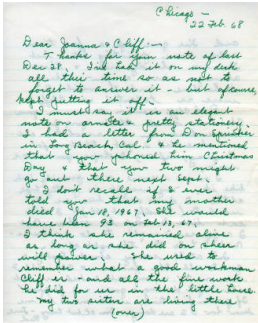 Chicago —
22 Feb. 68
Dear Joanna & Cliff: —
Thanks for your note of last
Dec 28. I've had it on my desk
all this time so as not to
forget to answer it - but of course,
kept putting it off.
I must say it is an elegant
note on ornate & pretty stationery.
I had a letter from Don
in Long Beach, Cal. & he mentioned
that you phoned him Christmas
Day & that you two might
go out there next Sept.
I don't recall if I ever
told you that my mother
died Jan 18, 1967. She would
have been 93 on Feb 13, 67.
I think she remained alive
as long as she did on sheer
will power. She used to
remember what a good workman
Cliff is - and all the fine work
he did for us in the little house.
My two sisters are living there
(over)